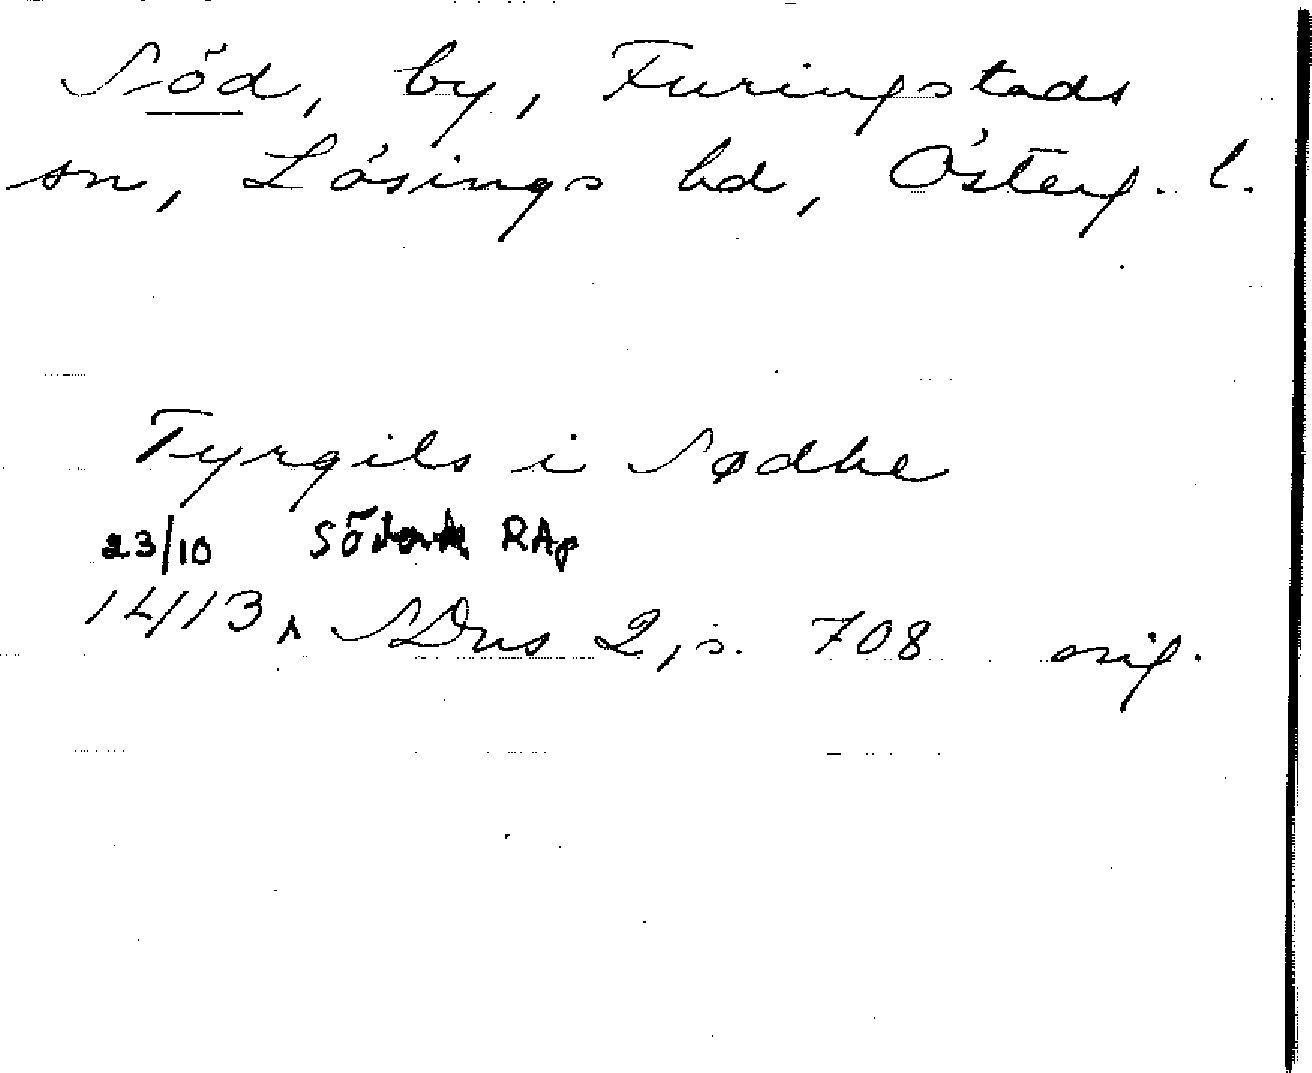 Söd, by, Furingstads
sn, Lösings hd, Österg. l.
Tyrgils i Sødhe
23/10 RAp
1413 SDns 2, s. 708 orig.